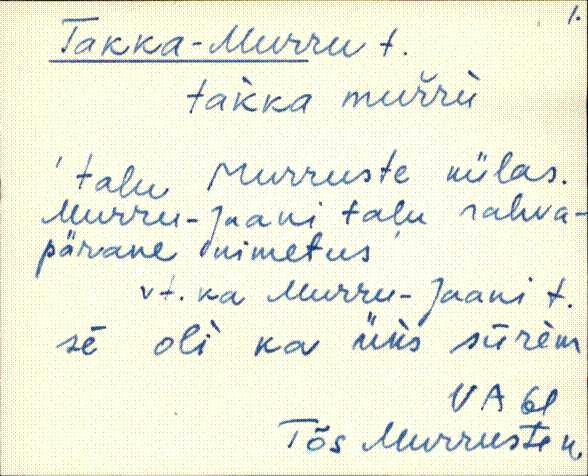 1.
Takka-Murru t.
takka murru
'talu Murruste külas.
Murru-Jaani talu rahva-
pärane nimetus'
vt. ka Murru-Jaani t.
sē oli ka üks sūrèm
VA 61
Tõs Murruste k.